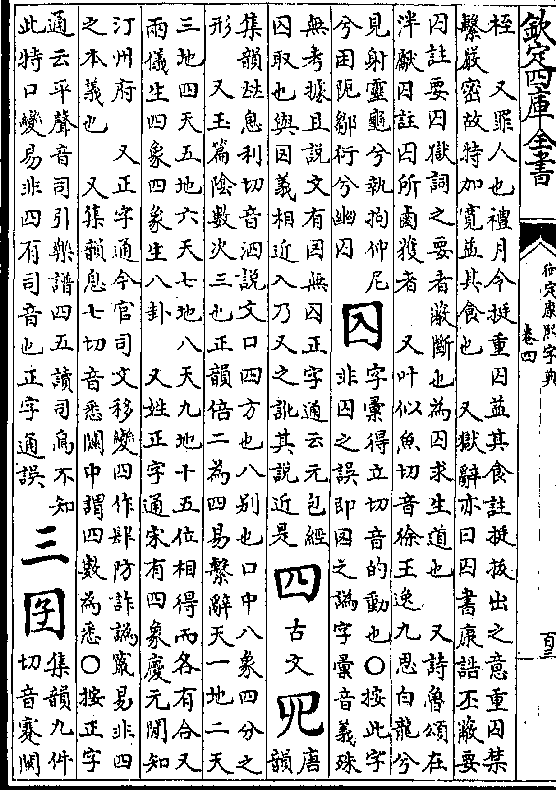 欽定四庫全書
御定康熙字典
卷四
百三
桎　又罪人也禮月令挺重囚益其食註挺拔出之意重囚禁
繫嚴密故特加寬益其食也　又獄辭亦曰囚書康誥丕蔽要
囚註要囚獄詞之要者蔽斷也為囚求生道也　又詩魯頌在
泮獻囚註囚所鹵獲者　又叶似魚切音徐王逸九思白龍兮
見射靈龜兮執拘仲尼
兮困阨鄒衍兮幽囚
㘝
字彙得立切音的動也○按此字
非囚之誤即因之譌字彙音義殊
無考據且說文有因無囚正字通云元包經
囚取也與因義相近入乃又之訛其說近是
四
古文
𦉭
唐韻
集韻𠀤息利切音泗說文口四方也八別也口中八象四分之
形　又玉篇陰數次三也正韻倍二為四易繫辭天一地二天
三地四天五地六天七地八天九地十五位相得而各有合又
兩儀生四象四象生八卦　又姓正字通宋有四象慶元閒知
汀州府　又正字通今官司文移變四作肆防詐譌竄易非四
之本義也　又集韻息七切音悉關中謂四數為悉○按正字
通云平聲音司引樂譜四五讀司烏不知
此特口變易非四有司音也正字通誤
亖
囝
集韻九件
切音蹇閩